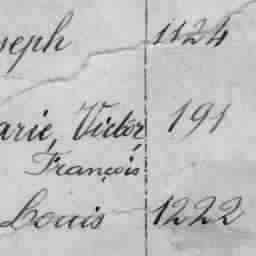 seph 1124
arie, Victor, 191
François
Louis 1222